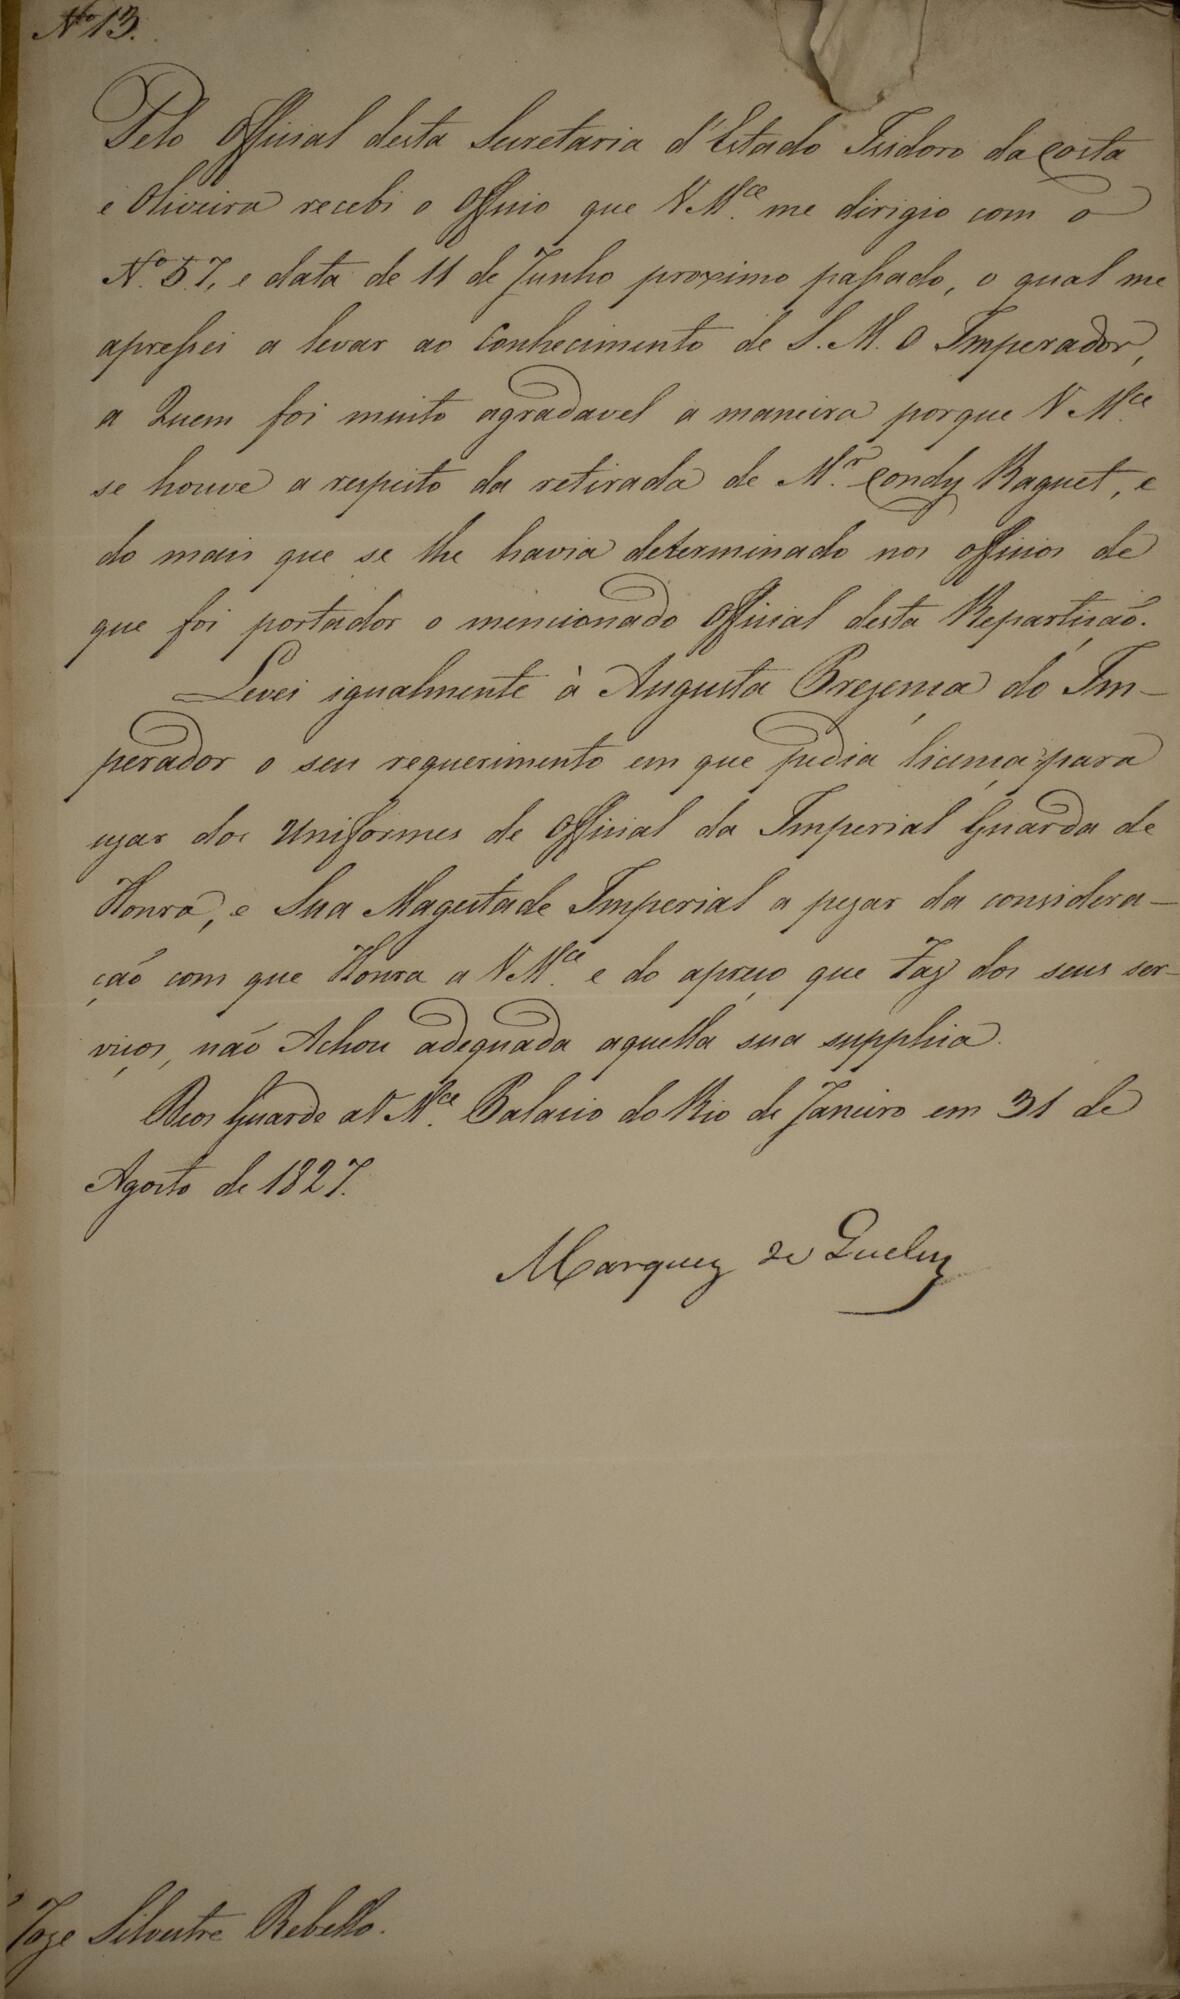 Nº 13.
Pelo Official desta Secretaria d'Estado Isidoro da Costa
e Oliveira recebi o Officio que VM.ce me dirigio com o
Nº. 57, e data de 11 de Junho proximo passado, o qual me
apressei a levar ao Conhecimento de S. M. O Imperador,
a Quem foi muito agradavel a maneira porque VM.ce
se houve a respeito da retirada de M.r Condy Raguet, e
do mais que se lhe havia determinado nos officios de
que foi portador o mencionado Official desta Repartição.
Levei igualmente à Augusta Prezença do Im-
perador o seu requerimento em que pedia licença para
uzar dos Uniformes de Official da Imperial Guarda de
Honra, e Sua Magestade Imperial a pezar da considera-
ção com que Honra a VM.ce e do apreço que Faz dos seus ser-
viços, não Achou adequada aquella sua supplica.
Deos Guarde a VM.ce Palacio do Rio de Janeiro em 31 de
Agosto de 1827.
Marquez de Queluz
Joze Silvestre Rebello.